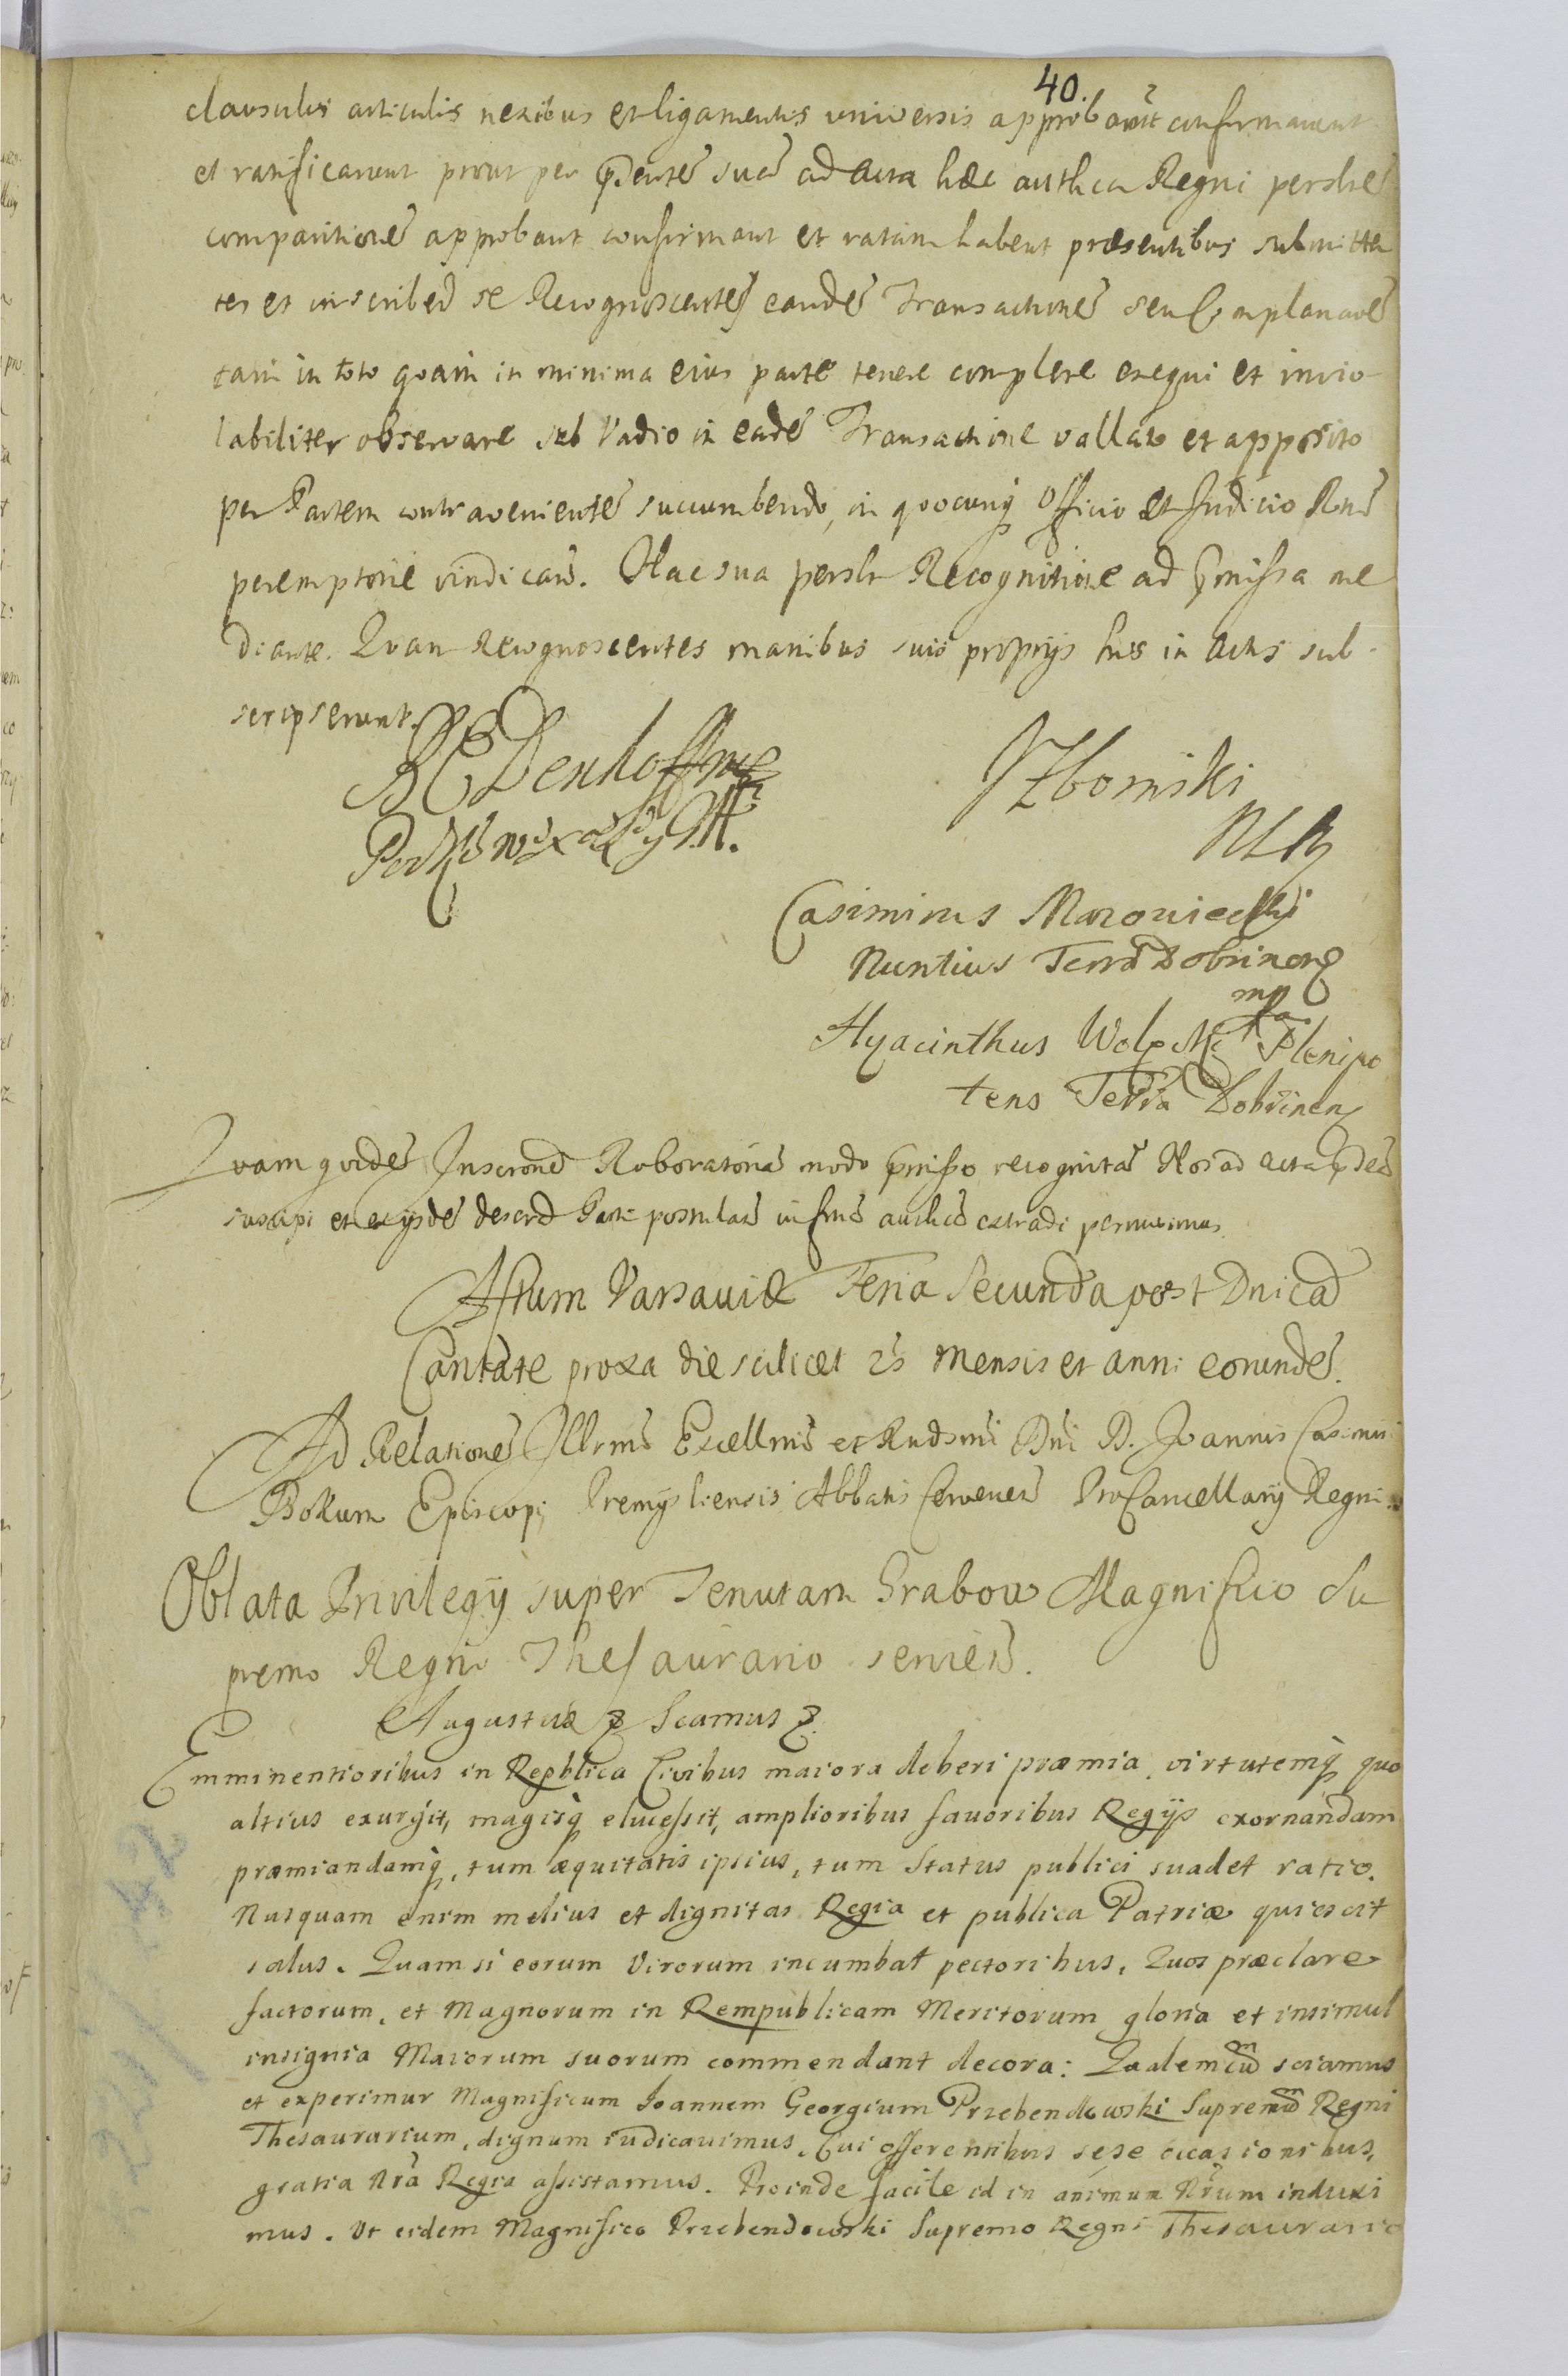 40.
clausulis articulis nexibus et ligamentis universis approbarūt confirmarunt
et ratificarunt prout per p̄sentē suā ad acta hæc authēa Regni persōlē
comparitionē approbant confirmant et ratam habent præsentibus submitten
tes et inscribeñ se Recognoscentes eandē Transactionē seu Complanaōē
tam in toto quam in minima eius parte tenere complere exequi et invio-
labiliter observare sub Vadio in eadē Transactione vallato et apposito
per Partem contravenientē succumbendo, in quocunq̨ Officio et Judicio Rni
peremptorie vindicañ. Hac sua persōli Recognitione ad p̄missa me
diante. Quam Recognoscentes manibus suis proprijs hīs in Actis sub-
scripserunt.
B C Denhoff mp
JZboinski
Casimirus Mazowiecki
Nuntius Terræ Dobrinens
mp
Hyacinthus Wolski Plenipo
tens Terræ Dobrinen
Quam quidē Inscrōnē Roboratoriā modo p̄misso recognitā Nos ad acta p̄dēā
suscipi et ex ijsdē descrō Parti postulañ in formā authēā extradi permisimus.
Actum Varsaviæ Feria Secunda post Dnicā
Cantate proxa die scilicet 25 Mensis et anni eorundē.
Ad Relationē Illrmi Excellmi et Rndsmi Dni D. Joannis Casimiri
Bokum Episcopi Premysliensis Abbatis Cervenes ProCancellarij Regni.
Oblata Privilegij super Tenutam Grabow Magnifico Su
premo Regni Thesaurario servieñ.
Augustus & Scamus &.
Emminentioribus in Repblica Civibus maiora deberi præmia, virtutemq̨ quo
altius exurgit, magisq̨ elucessit, amplioribus favoribus Regijs exornandam
præmiandamq̨, tum æquitatis ipsius, tum Status publici suadet ratio.
Nusquam enim melius et dignitas Regia et publica Patriæ quiescit
salus. Quam si eorum Virorum incumbat pectoribus, Quos præclare
factorum, et Magnorum in Rempublicam Meritorum gloria et insimul
insignia Maiorum suorum commendant decora: Qualem cū sciamus
et experimur Magnificum Ioannem Georgium Przebendowski Supremū Regni
Thesaurarium, dignum iudicavimus, Cui offerentibus sese occasionibus,
gratia Nrā Regia assistamus. Proinde facile id in animum Nrūm induxi
mus. Ut eidem Magnifico Przebendowski Supremo Regni Thesaurario